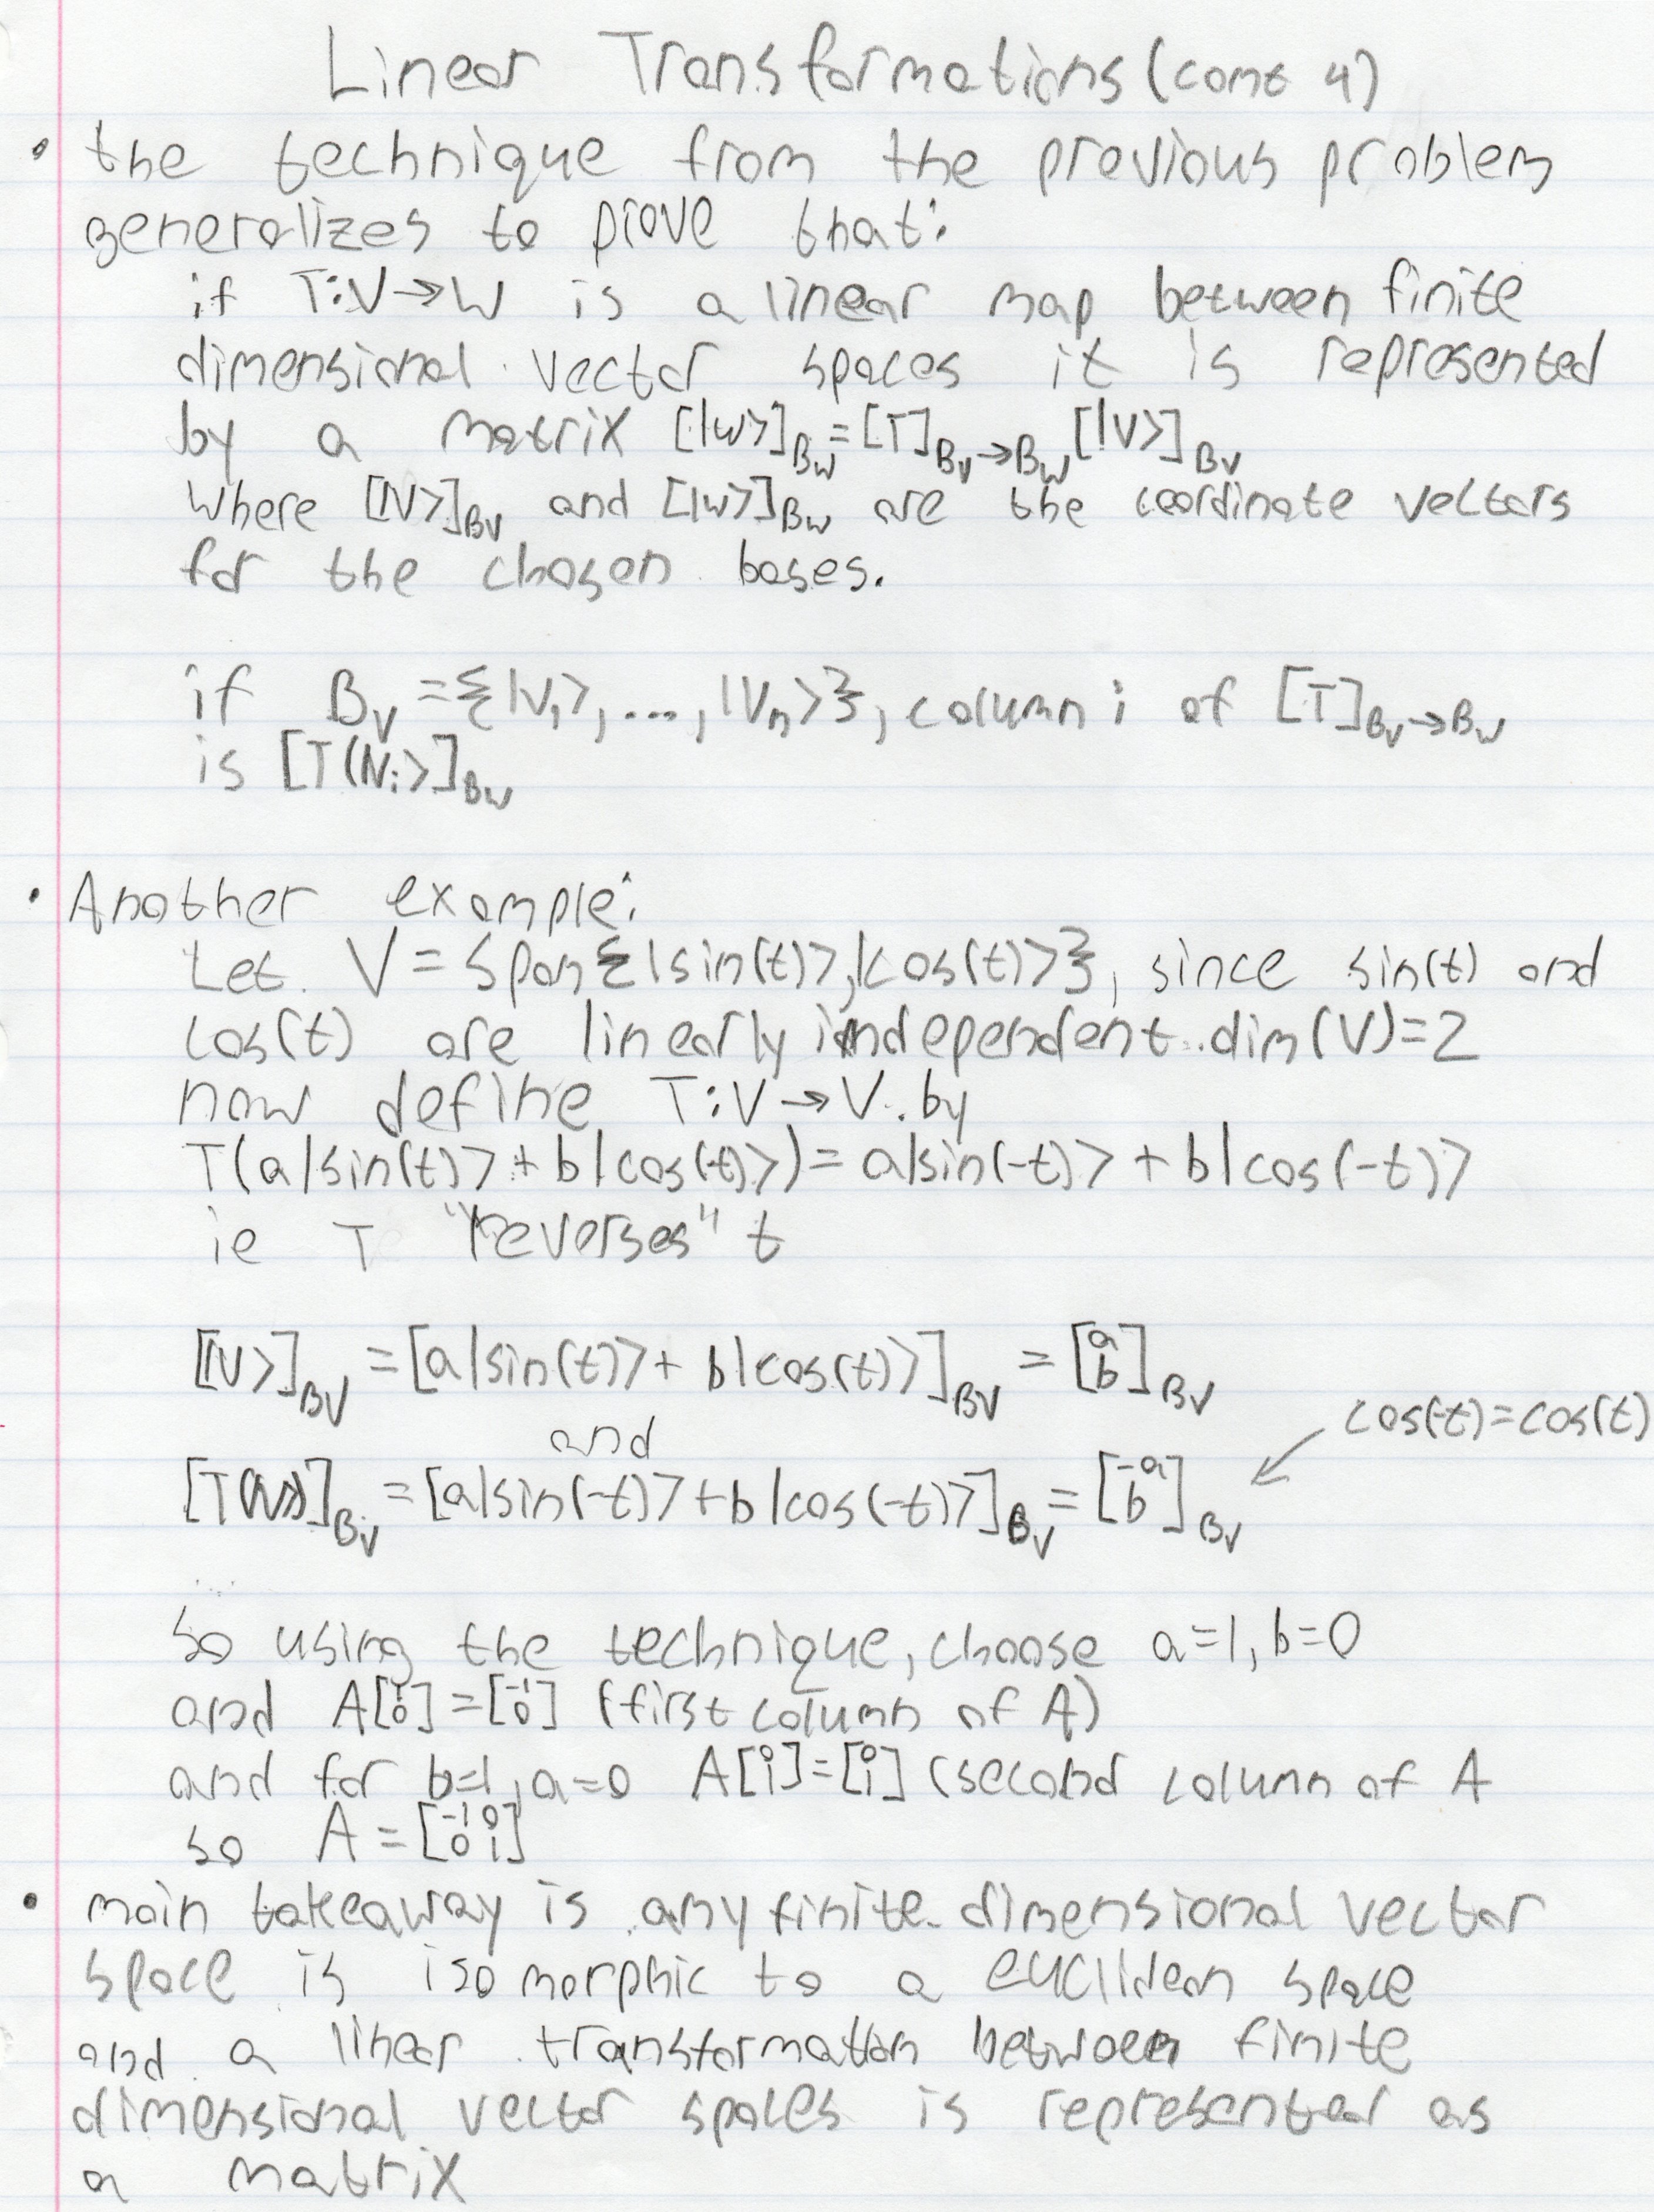 Linear Transformations (cont 4)
• the technique from the previous problem
generalizes to prove that:
if T:V→W is a linear map between finite
dimensional vector spaces it is represented
by a matrix [|w>]_Bw = [T]_Bv→Bw [|V>]_Bv
where [|V>]_Bv and [|w>]_Bw are the coordinate vectors
for the chosen bases.
if Bv = {|V₁>, ..., |Vn>}, column i of [T]_Bv→Bw
is [T(|Vi>]_Bw
• Another example:
Let V = span{|sin(t)>,|cos(t)>}, since sin(t) and
cos(t) are linearly independent dim(V)=2
now define T:V→V by
T(a|sin(t)> + b|cos(t)>) = a|sin(-t)> + b|cos(-t)>
ie T "reverses" t
[|V>]_Bv = [a|sin(t)> + b|cos(t)>]_Bv = [a b]_Bv
cos(-t)=cos(t)
and
[T(|V>)]_Bv = [a|sin(-t)> + b|cos(-t)>]_Bv = [-a b]_Bv
so using the technique, choose a=1, b=0
and A[1 0] = [-1 0] (first column of A)
and for b=1, a=0 A[0 1] = [0 1] (second column of A
so A = [-1 0 0 1]
• main takeaway is any finite dimensional vector
space is isomorphic to a euclidean space
and a linear transformation between finite
dimensional vector spaces is represented as
a matrix